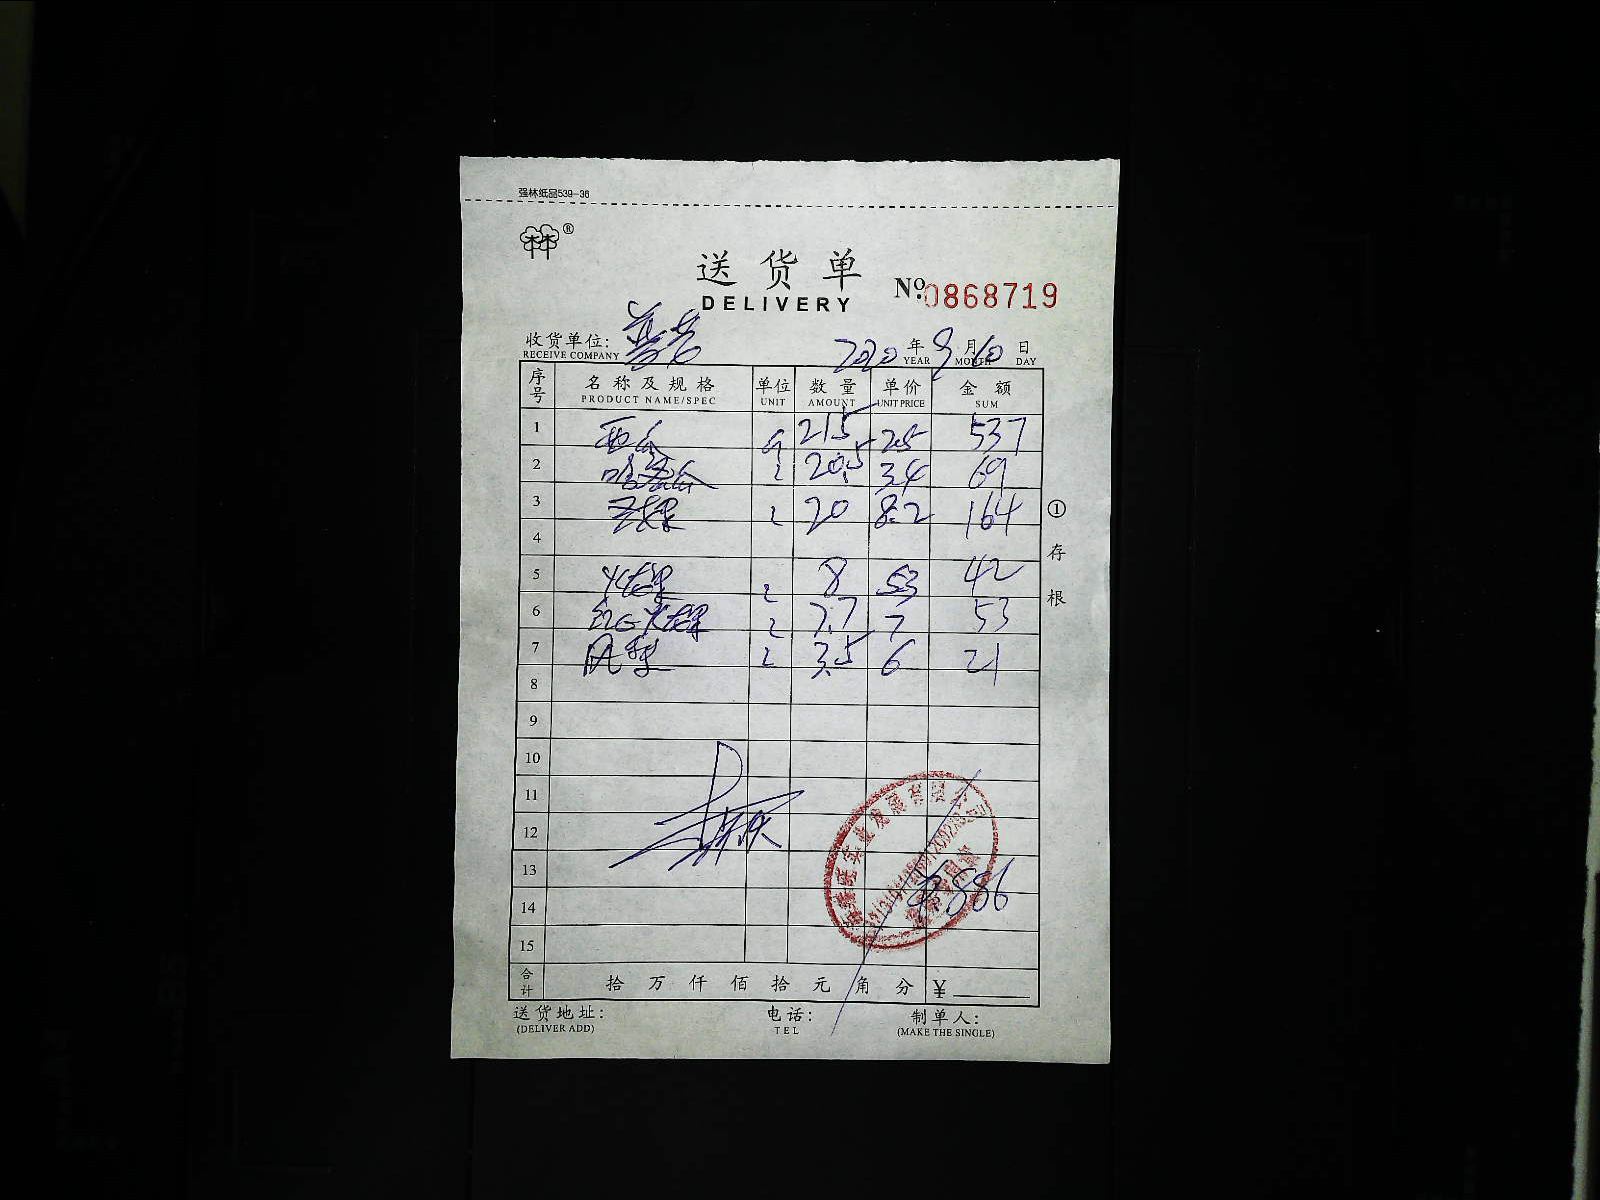 强林纸品539-36
送货单
DELIVERY
№ 0868719
收货单位:
RECEIVE COMPANY
2020 年 9 月 10 日
YEAR MONTH DAY
序号 名称及规格 单位 数量 单价 金额
PRODUCT NAME/SPEC UNIT AMOUNT UNIT PRICE SUM
1 西瓜 斤 215 2.5 537
2 哈蜜瓜 20.5 3.4 69
3 20 8.2 164
4
5 火龙果 8 53 42
6 红心火龙果 7.7 7 53
7 凤梨 3.5 6 21
8
9
10
11
12
13 ¥886
14
15
①存根
合计 拾 万 仟 佰 拾 元 角 分 ¥
送货地址: 电话: 制单人:
(DELIVER ADD) TEL (MAKE THE SINGLE)